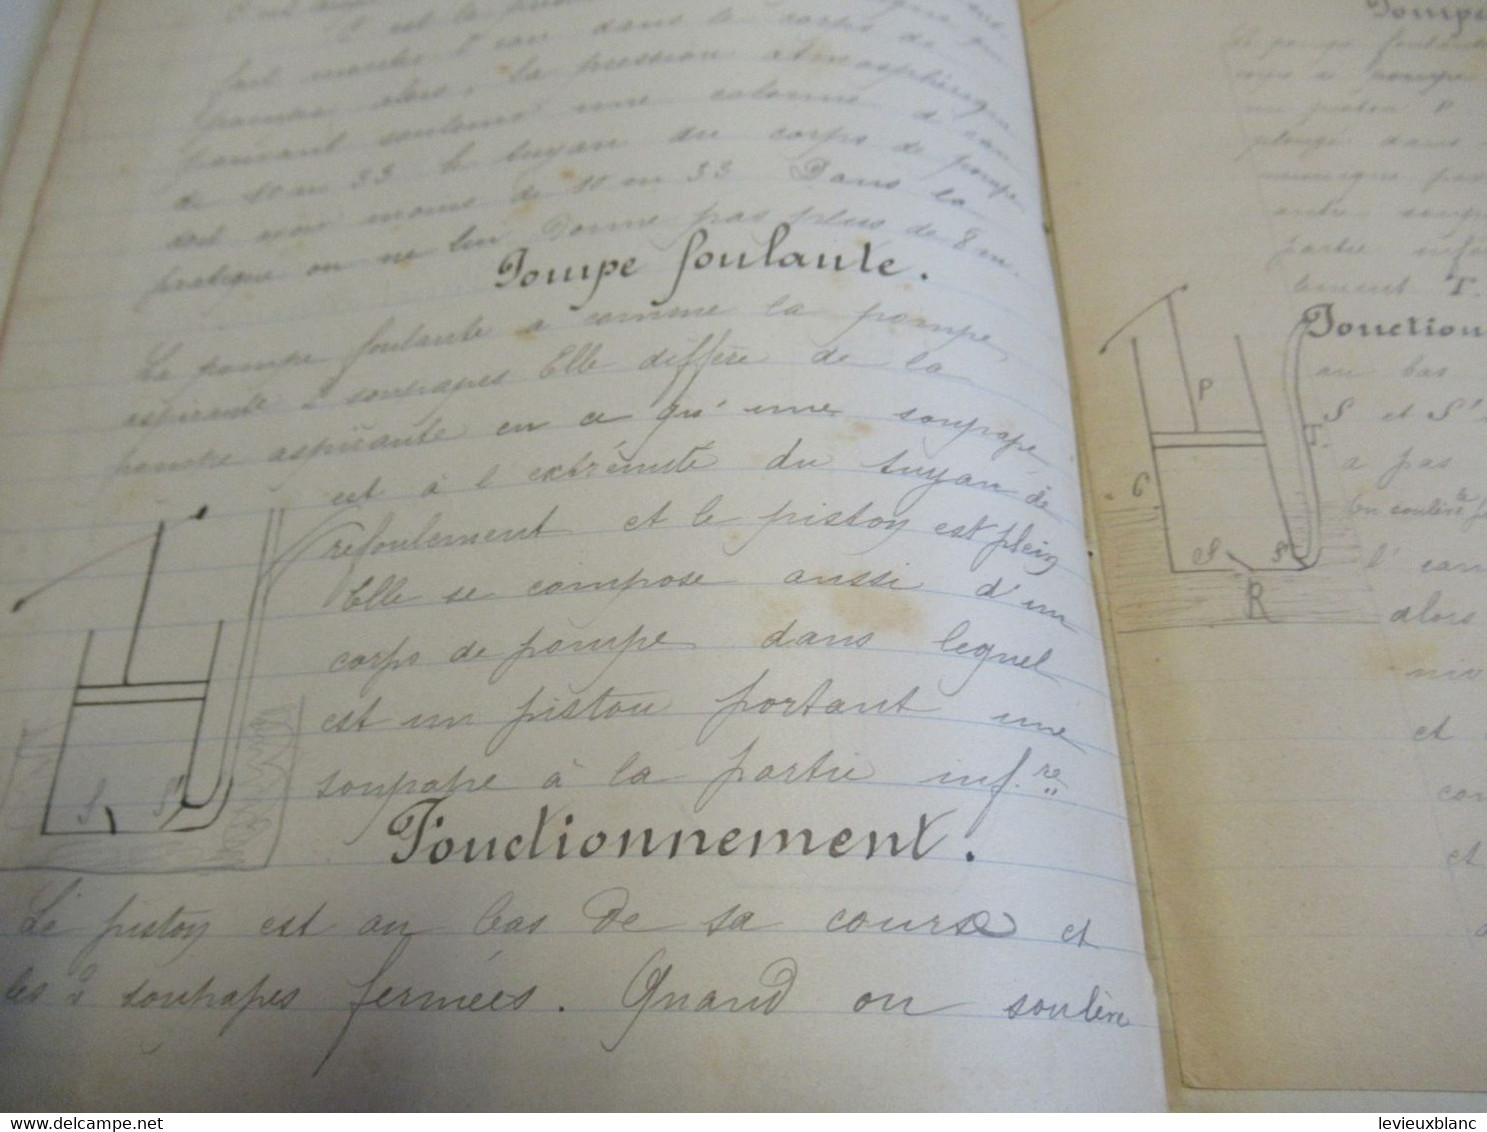 fait monter l'eau dans le corps de
pompe alors, la pression atmosphérique
pouvant soutenir une colonne d'eau
de 10 m 33 le tuyau du corps de pompe
soit avoir moins de 10 m 33 Dans la
pratique on ne lui donne pas plus de 8 m.
Pompe foulante.
La pompe foulante a comme la pompe
aspirante 2 soupapes Elle diffère de la
pompe aspirante en ce qu'une soupape
est à l'extrémité du tuyau de
refoulement et le piston est plein
Elle se compose aussi d'un
corps de pompe dans lequel
est un piston portant une
soupape à la partie inf.re
S S'
Fonctionnement.
Le piston est au bas de sa course et
les 2 soupapes fermées. Quand on soulève
Pompe
La pompe foulante
corps de pompe
un piston P
plongé dans
partie infé
T.
Fonction
au bas
S et S'
a pas
On soulève
l'
alors
niv
et
con
et
P
T.
C
S S'
R
delcampe.net
levieuxblanc